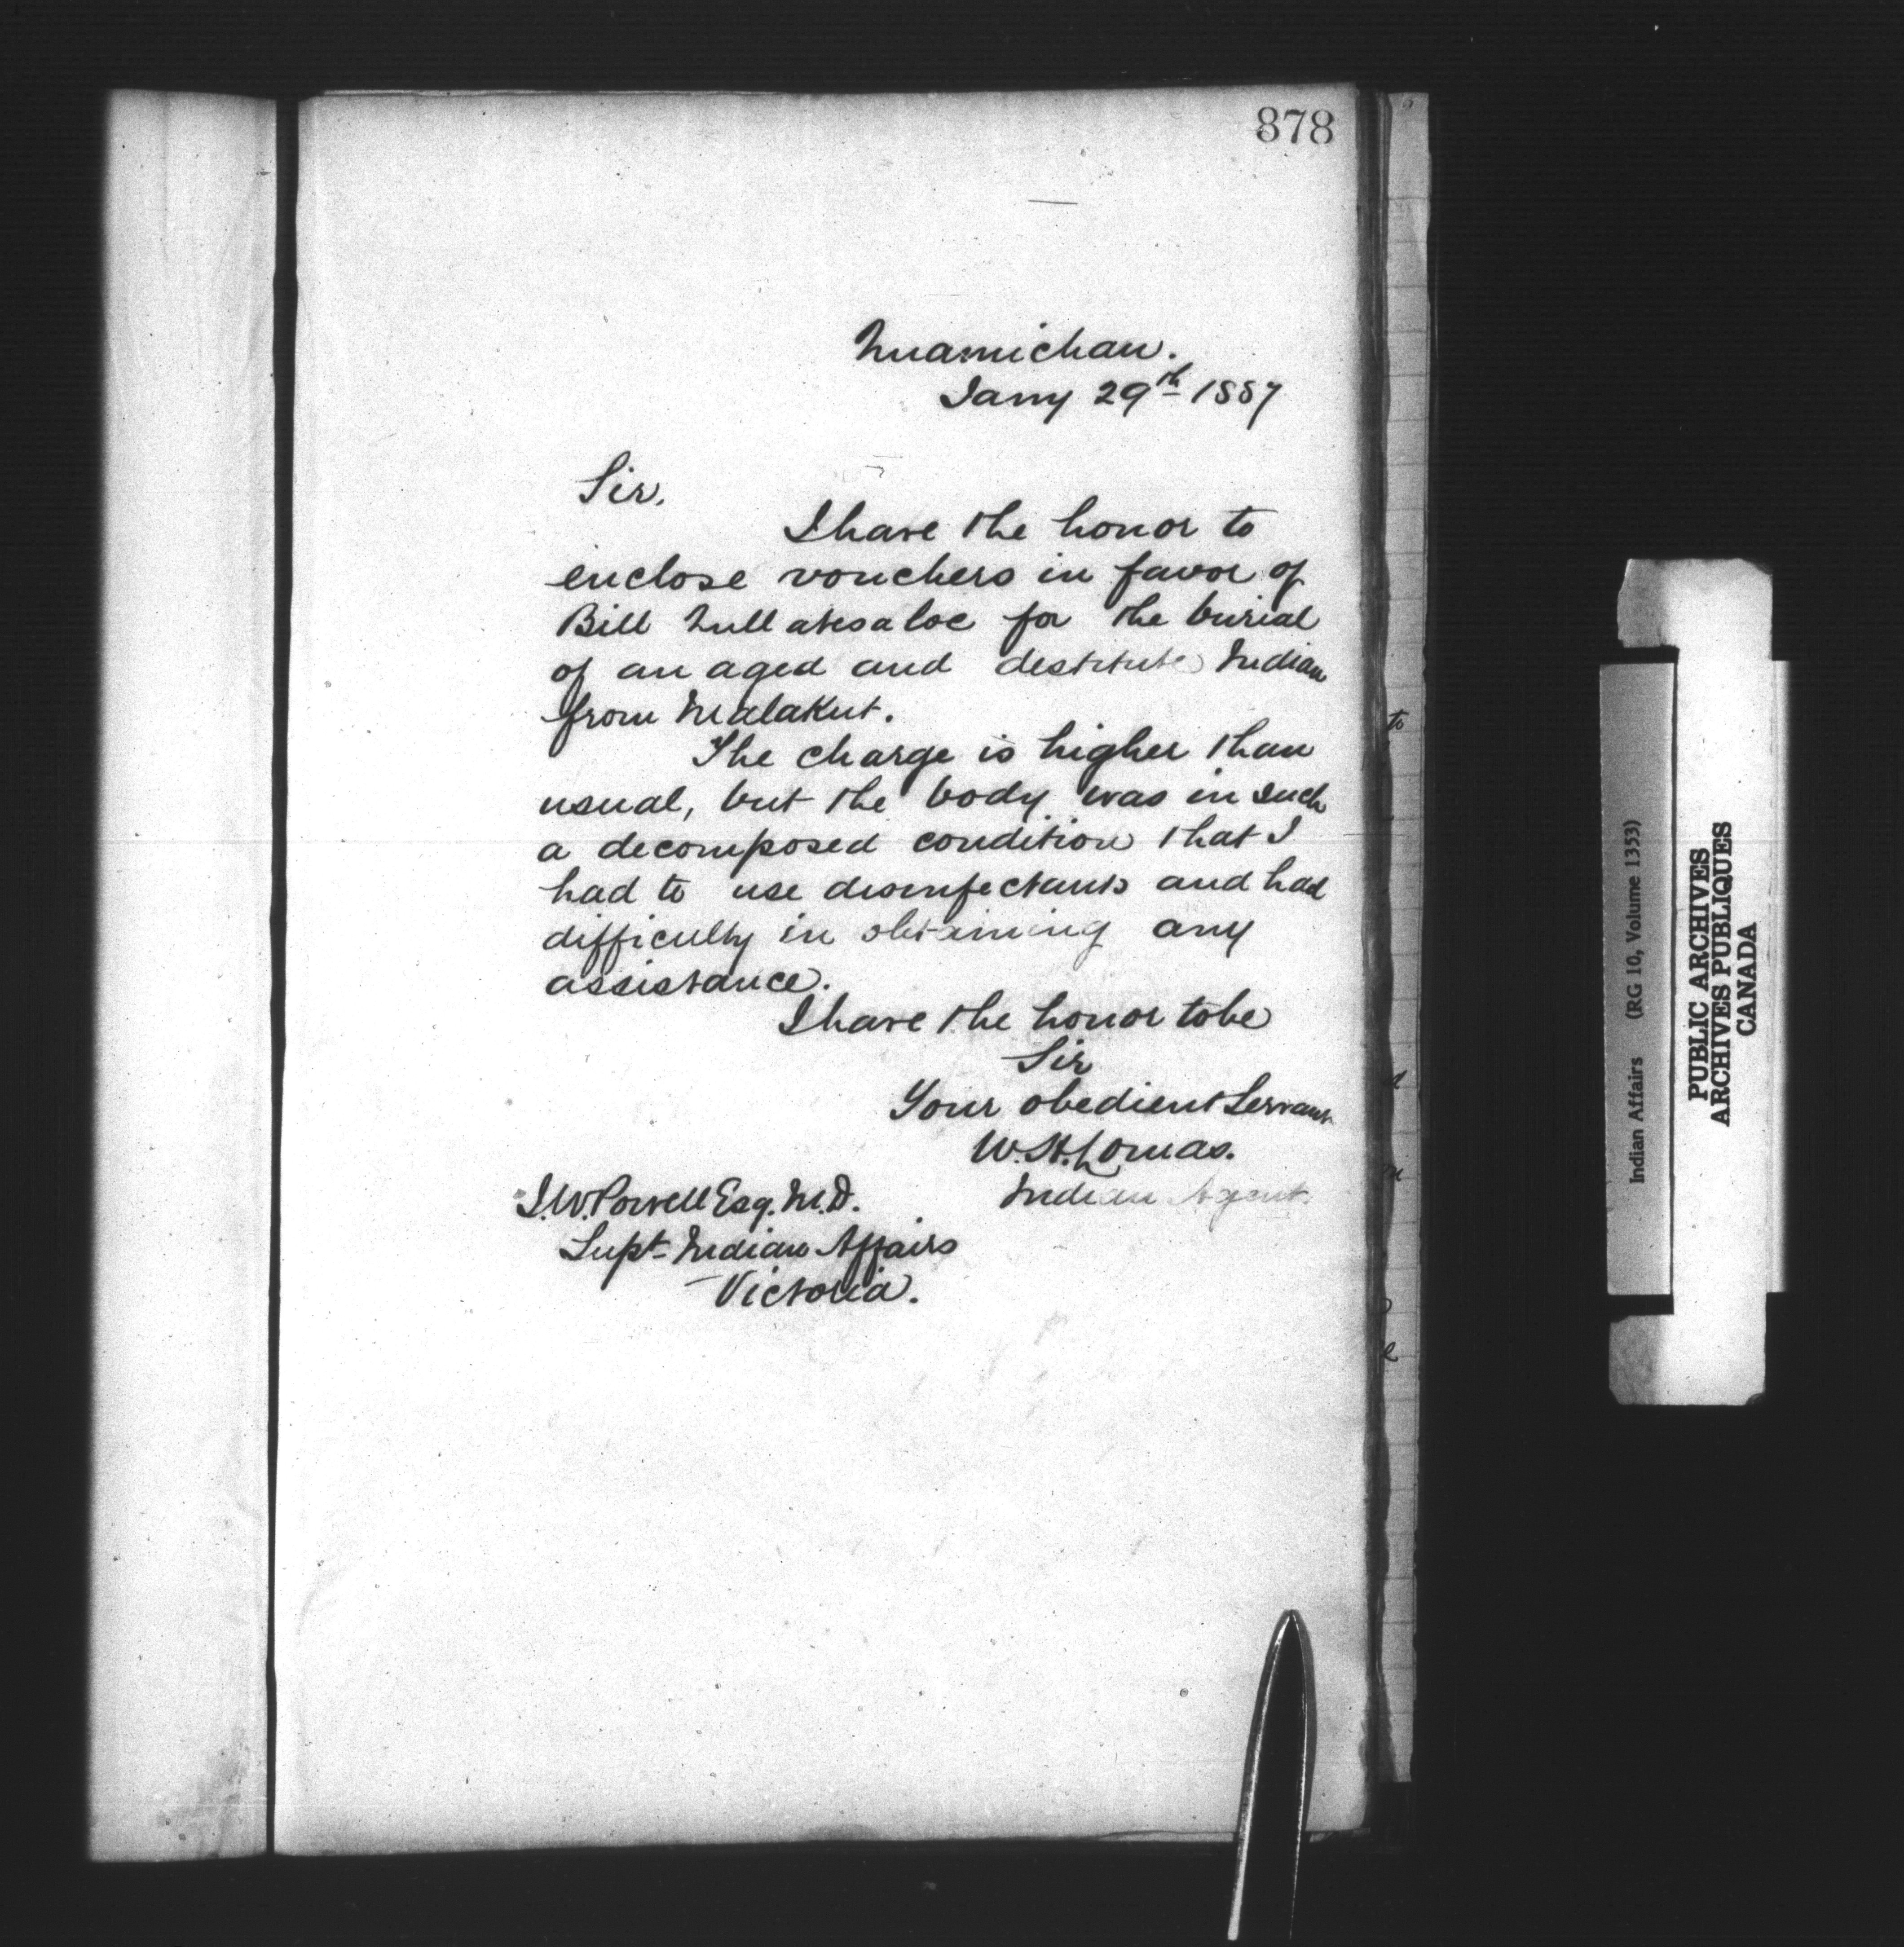 878
Quamichan.
Jany 29th 1887
Sir,
I have the honor to
enclose vouchers in favor of
Bill for the burial
of an aged and destitute Indian
from Malakut.
The charge is higher than
usual, but the body was in such
a decomposed condition that I
had to use disinfectants and had
difficulty in obtaining any
assistance.
I have the honor to be
Sir
Your obedient Servant
W.H. Lomas.
Indian Agent.
I.W. Powell Esq. M.D.
Supt Indian Affairs
Victoria.
to
Indian Affairs (RG 10, Volume 1353)
PUBLIC ARCHIVES
ARCHIVES PUBLIQUES
CANADA